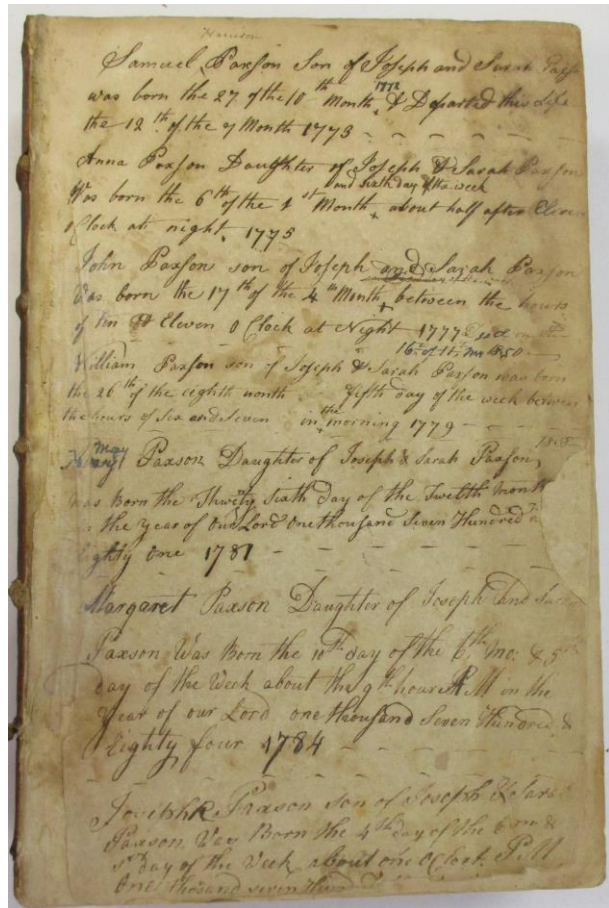 Harrison
Samuel Paxson Son of Joseph and Sarah
was born the 27 of the 10th Month 1772 & Departed this Life
the 12th of the 7 Month 1773
Anna Paxson Daughter of Joseph & Sarah Paxson
and sixth day of the week
Was born the 6th of the 1st Month about half after Eleven
o Clock at night 1775
John Paxson son of Joseph and Sarah Paxson
Was born the 17th of the 4th Month between the hours
of ten & Eleven o Clock at Night 1777
16th of 11th mo 1850
William Paxson son of Joseph & Sarah Paxson was born
the 26th of the eighth month fifth day of the week between
the hours of Six and Seven in the morning 1779
Mary Paxson Daughter of Joseph & Sarah Paxson
was Born the Twenty Sixth day of the Twelth Month
in the year of our Lord One thousand Seven Hundred
Eighty One 1781
Margaret Paxson Daughter of Joseph and
Paxson Was Born the 10th day of the 6th mo: & 5th
day of the Week about the 9th hour P M in the
Year of our Lord one thousand Seven Hundred &
Eighty four 1784
Paxson son of Joseph & Sarah
Paxson Was Born the 4th day of the 6 m &
day of the Week about one o Clock P.M
One thousand seven